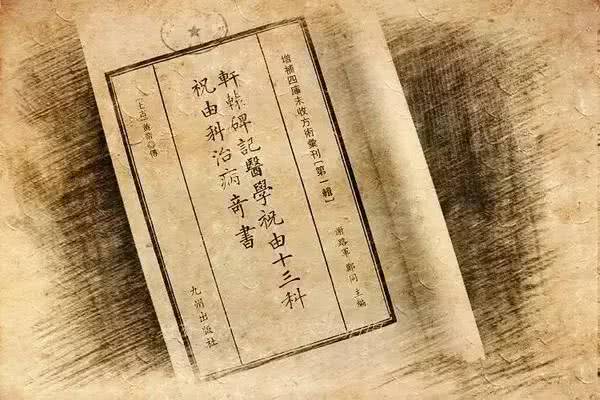 增補四庫未收方術彙刊〔第一輯〕
謝路軍 鄭同 主編
軒轅碑記醫學祝由十三科
祝由科治病奇書
〔上古〕黃帝◎傳
九州出版社